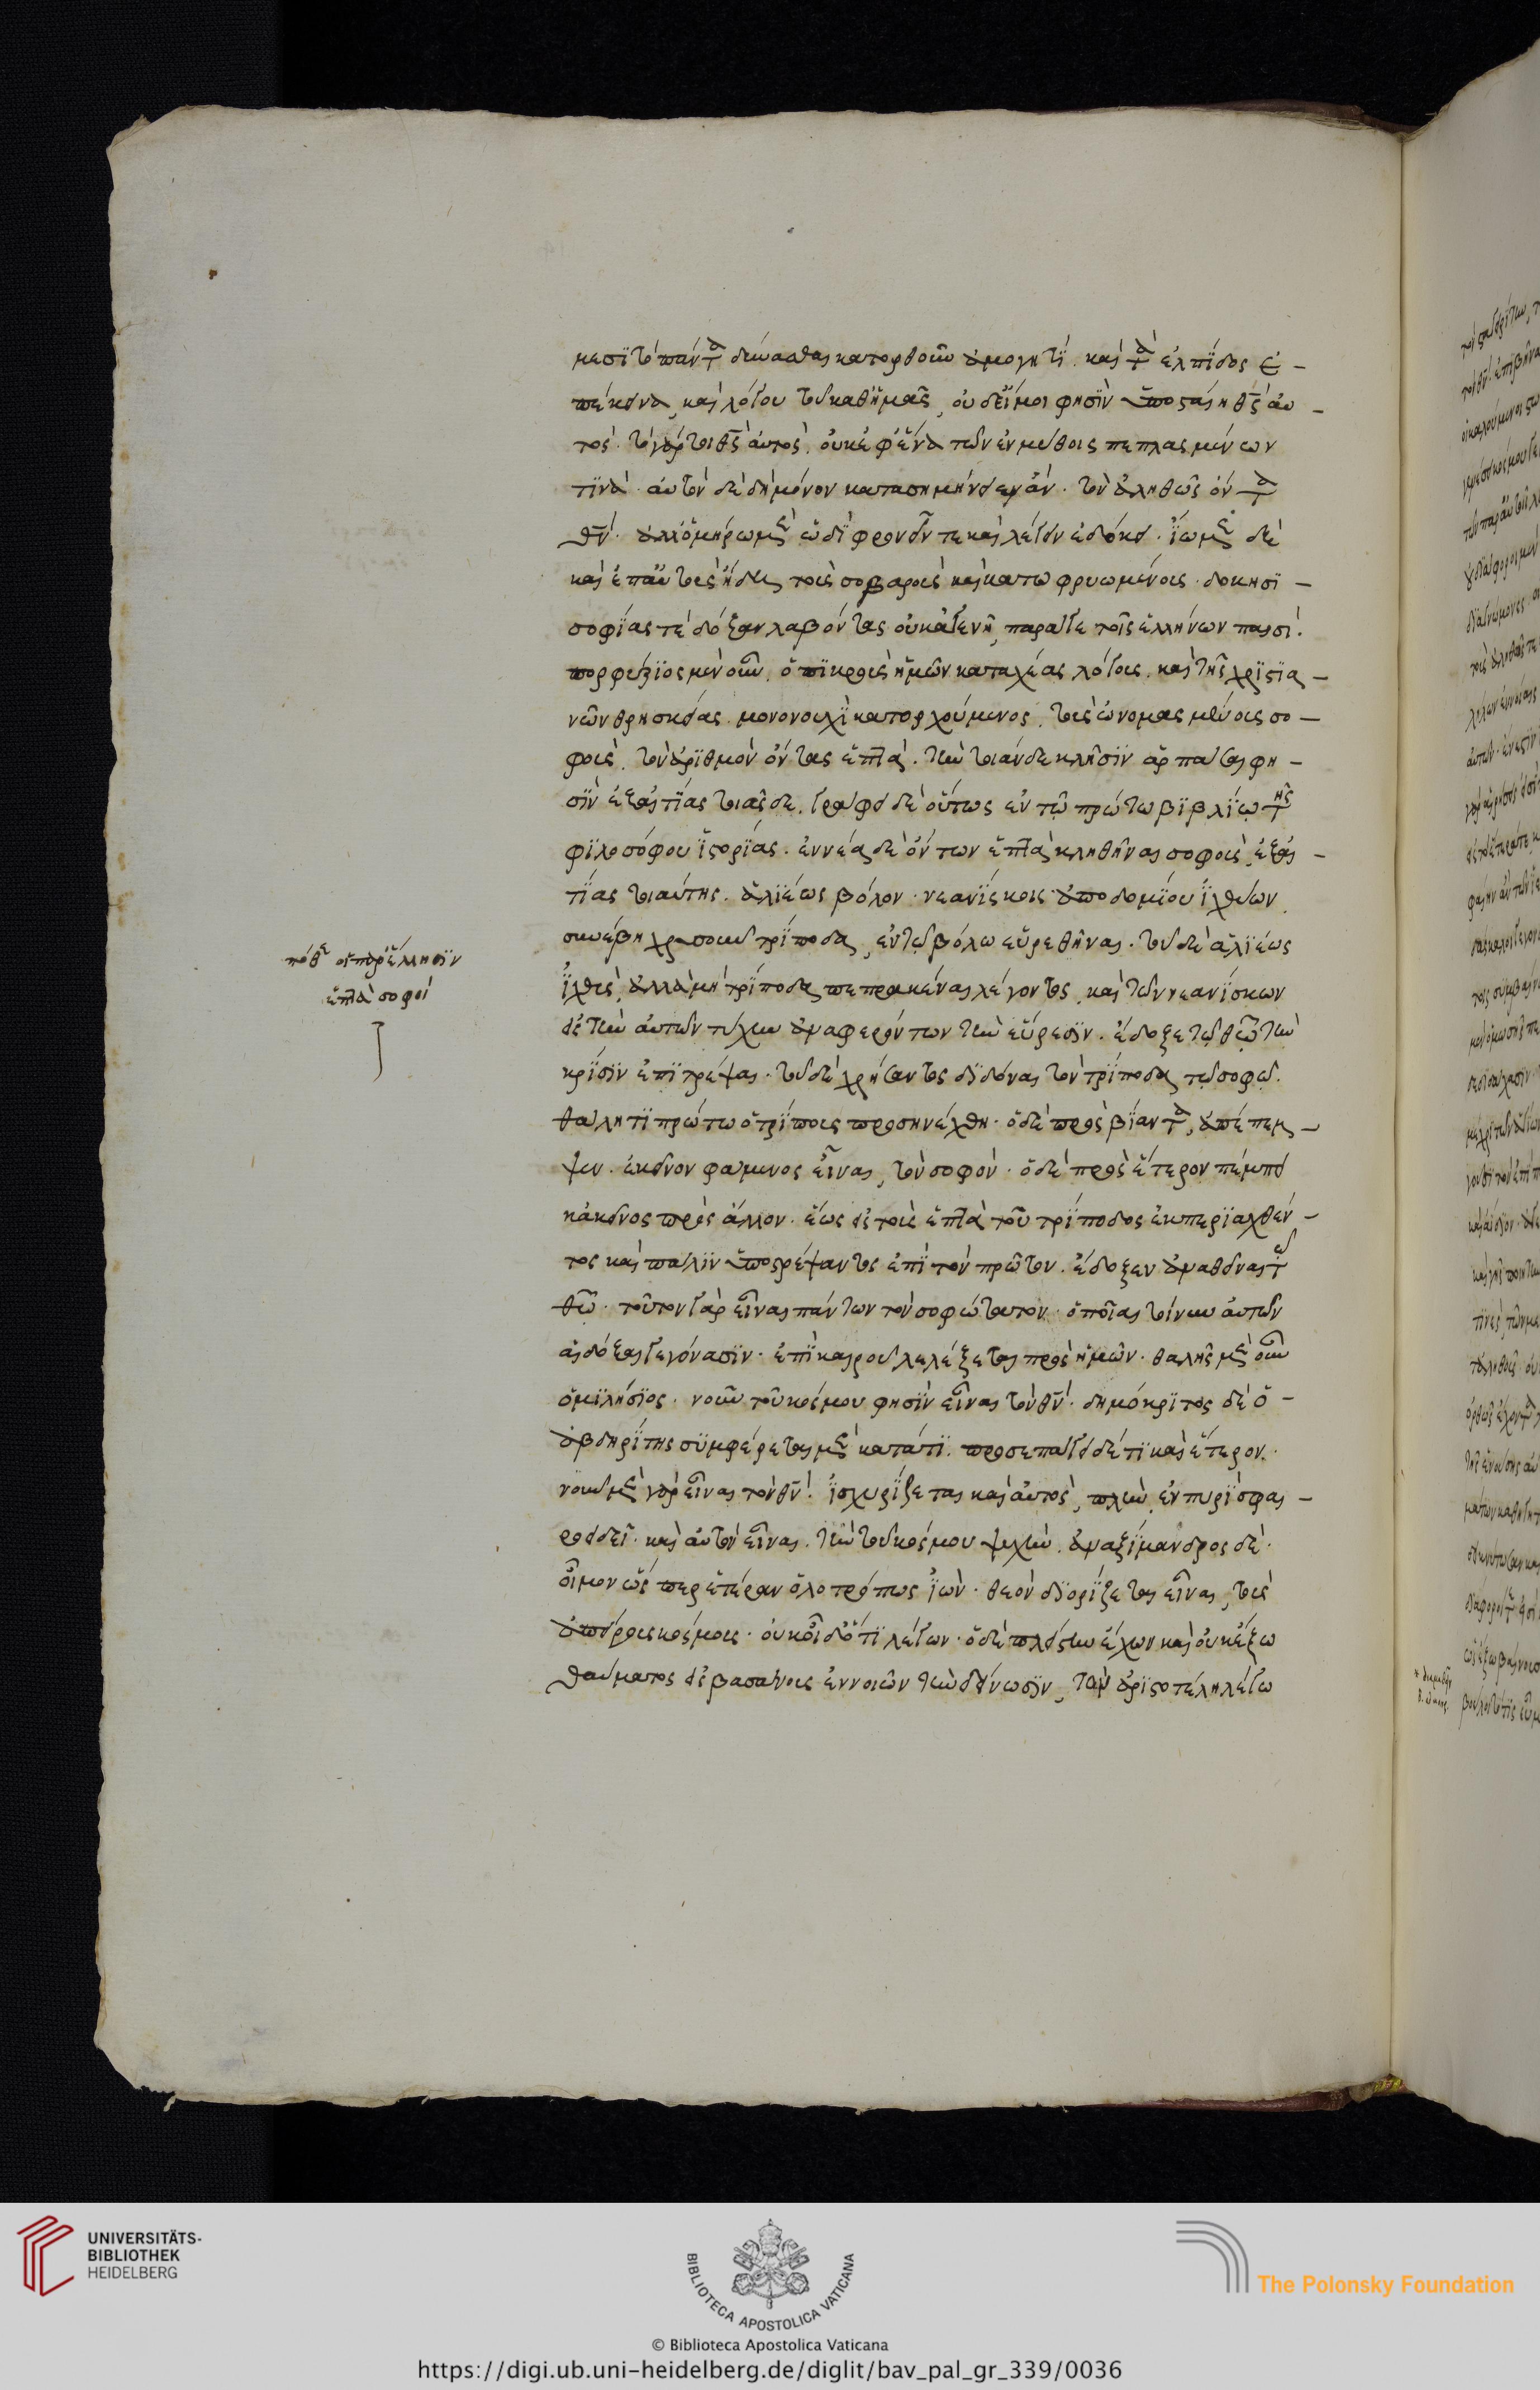 μεσϊ τὸ πάντα δύνασθαι κατορθοῦν ἀμογητί. καὶ τὰ ἐλπίδος ἐ-
πέκεινα, καὶ λόγου τοῦ καθἡμᾶς, οὐδείς μοι φησὶν ὑποσταίη θς̄ αὐ-
τός. τὸ γάρ τοι θς̄ αὐτός. οὐκ ἐφἕνα τῶν ἐν μύθοις πεπλασμένων
τινά. αὐτὸν δὲ δὴ μόνον κατασημήνειεν ἄν. τὸν ἀληθῶς ὄντα
θν̄. ἀλλ' ὁμήρω μὲν ὧδϊ φρονεῖν τε καὶ λέγειν ἐδόκει. ἴωμεν δὲ
καὶ ἐπαὐτοὺς ἤδη τοὺς σοβαροὺς καὶ κατωφρυωμένους. δοκησϊ-
σοφίας τὲ δόξαν λαβόντας οὐκ ἀγενῆ, παράγε τοῖς ἑλλήνων παισί.
πορφύριος μὲν οὖν. ὁ πϊκροὺς ἡμῶν καταχέας λόγους. καὶ τῆς χρϊστϊα-
νῶν θρησκείας. μονονουχὶ κατορχούμενος. τοὺς ὠνομασμένους σο-
φοὺς. τὸν ἀρϊθμὸν ὄντας ἑπτά. τὴν τοιάνδε κλῆσϊν ἁρπάσαι φη-
σϊν ἐξαἰτΐας τοιᾶσδε. γράφει δὲ οὕτως ἐν τῶ πρώτω βϊβλΐω τῆς
φϊλοσόφου ἱστορίας. ἐννέα δὲ ὄντων ἑπτὰ κληθῆναι σοφοὺς, ἐξαἰ-
τΐας τοιαύτης. ἁλϊέως βόλον νεανΐσκοις ἀποδομΐου ἰχθύων.
συνέβη χρυσοῦν τρΐποδα, ἐν τῶ βόλω εὑρεθῆναι. τοῦ δὲ ἁλϊέως
ἰχθῦς, ἀλλὰ μὴ τρΐποδα πεπρακέναι λέγοντος, καὶ τῶν νεανΐσκων
εἰς τὴν αὐτῶν τύχην ἀναφερόντων τὴν εὕρεσϊν. ἔδοξε τῶ θῶ τὴν
κρΐσϊν ἐπϊτρέψαι. τοῦ δὲ χρήσαντος δϊδόναι τὸν τρΐποδα τῶ σοφῶ.
θάλητϊ πρώτω ὁ τρΐπους προσηνέχθη. ὁ δὲ πρὸς βΐαντα, ἀπέπεμ-
ψεν. ἐκεῖνον φάμενος εἶναι, τὸν σοφόν. ὁ δὲ πρὸς ἕτερον πέμπει
κἀκεῖνος πρὸς ἄλλον. ἕως εἰς τοὺς ἑπτὰ τοῦ τρΐποδος ἐκπερϊαχθέν-
τος καὶ πάλϊν ὑποστρέψαντος ἐπϊ τὸν πρῶτον. ἔδοξεν ἀναθεῖναι τῶ
θῶ. τοῦτον γὰρ εἶναι πάντων τὸν σοφώτατον. ὁποῖαι τοίνυν αὐτῶν
αἱ δόξαι γεγόνασϊν. ἐπϊ καιροῦ λελέξεται πρὸς ἡμῶν. θαλῆς μὲν οὖν
ὁ μϊλήσϊος. νοῦν τοῦ κόσμου φησϊν εἶναι τὸν θν̄. δημόκρϊτος δὲ ὁ
ἀβδηρΐτης σϋμφέρεται μὲν κατάτϊ. προσεπάγει δέ τϊ καὶ ἕτερον.
νοῦν μὲν γὰρ εἶναι τὸν θν̄. ἰσχυρΐζεται καὶ αὐτὸς, πλὴν ἐν πυρὶ σφαι-
ροειδεῖ. καὶ αὐτὸν εἶναι. τὴν τοῦ κόσμου ψυχὴν. ἀναξΐμανδρος δὲ.
οἶμον ὥς περ ἑτέραν ὁλοτρόπως ἰὼν. θεὸν δϊορΐζεται εἶναι, τοὺς
ἀπείρους κόσμους. οὐκ οἶδ' ὅτϊ λέγων. ὁ δὲ πλείστην ἔχων καὶ οὐκ ἔξω
θαύματος εἰς βασάνους ἐννοιῶν τὴν δείνωσϊν, τὸν ἀρϊστοτέλη λέγω
πόθεν οἱ παρἕλλησϊν
ἑπτὰ σοφοί
UNIVERSITÄTS-
BIBLIOTHEK
HEIDELBERG
BIBLIOTECA APOSTOLICA VATICANA
© Biblioteca Apostolica Vaticana
The Polonsky Foundation
https://digi.ub.uni-heidelberg.de/diglit/bav_pal_gr_339/0036